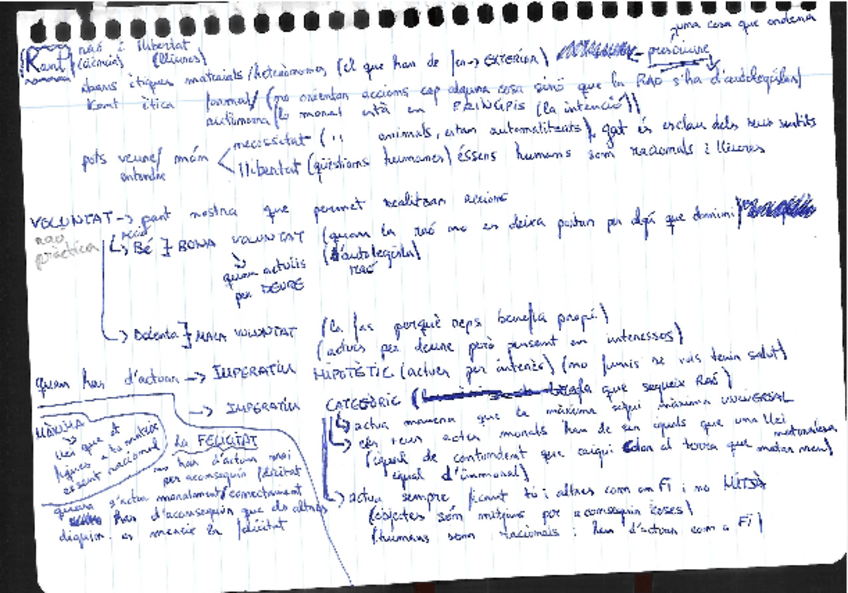 una cosa que ordena
Kant raó i llibertat prescriure
(ciència) (lliures)
abans ètiques materials/heterònomes (el que han de fer → EXTERIOR)
Kant ètica formal/ (no orienten accions cap alguna cosa sinó que la RAÓ s'ha d'autolegislar)
autònoma (la moral està en PRINCIPIS (la intenció))
pots veure/ món necessitat ( animals, estan automatitzats), gat és esclau dels seus sentits
entendre llibertat (qüestions humanes) éssers humans som racionals i lliures
VOLUNTAT → part nostra que permet realitzar accions
raó pràctica
Bé } BONA VOLUNTAT (quan la raó no es deixa portar per algú que domini)
quan actuïs (d'autolegislar)
per DEURE raó
→ Dolenta } MALA VOLUNTAT (la fas perquè reps benefici propi)
(actues per deure però pensant en interessos)
quan has d'actuar → IMPERATIU HIPOTÈTIC (actues per interès) (no fumis si vols tenir salut)
→ IMPERATIU CATEGÒRIC ( que segueix RAÓ)
actua manera que la màxima sigui màxima UNIVERSAL
els teus actes morals han de ser iguals que una llei
(igual de contundent que caigui al terra que matar meu)
igual d'immoral)
→ actua sempre ficant tu i altres com a FI i no MITJÀ
(objectes són mitjans per aconseguir coses)
(humans som racionals i han d'actuar com a FI)
MÀXIMA
llei que et
figues a tu mateix
essent racional
La FELICITAT
no has d'actuar mai
per aconseguir felicitat
quan s'actua moralment/correctament
has d'aconseguir que els altres
diguin es mereix la felicitat